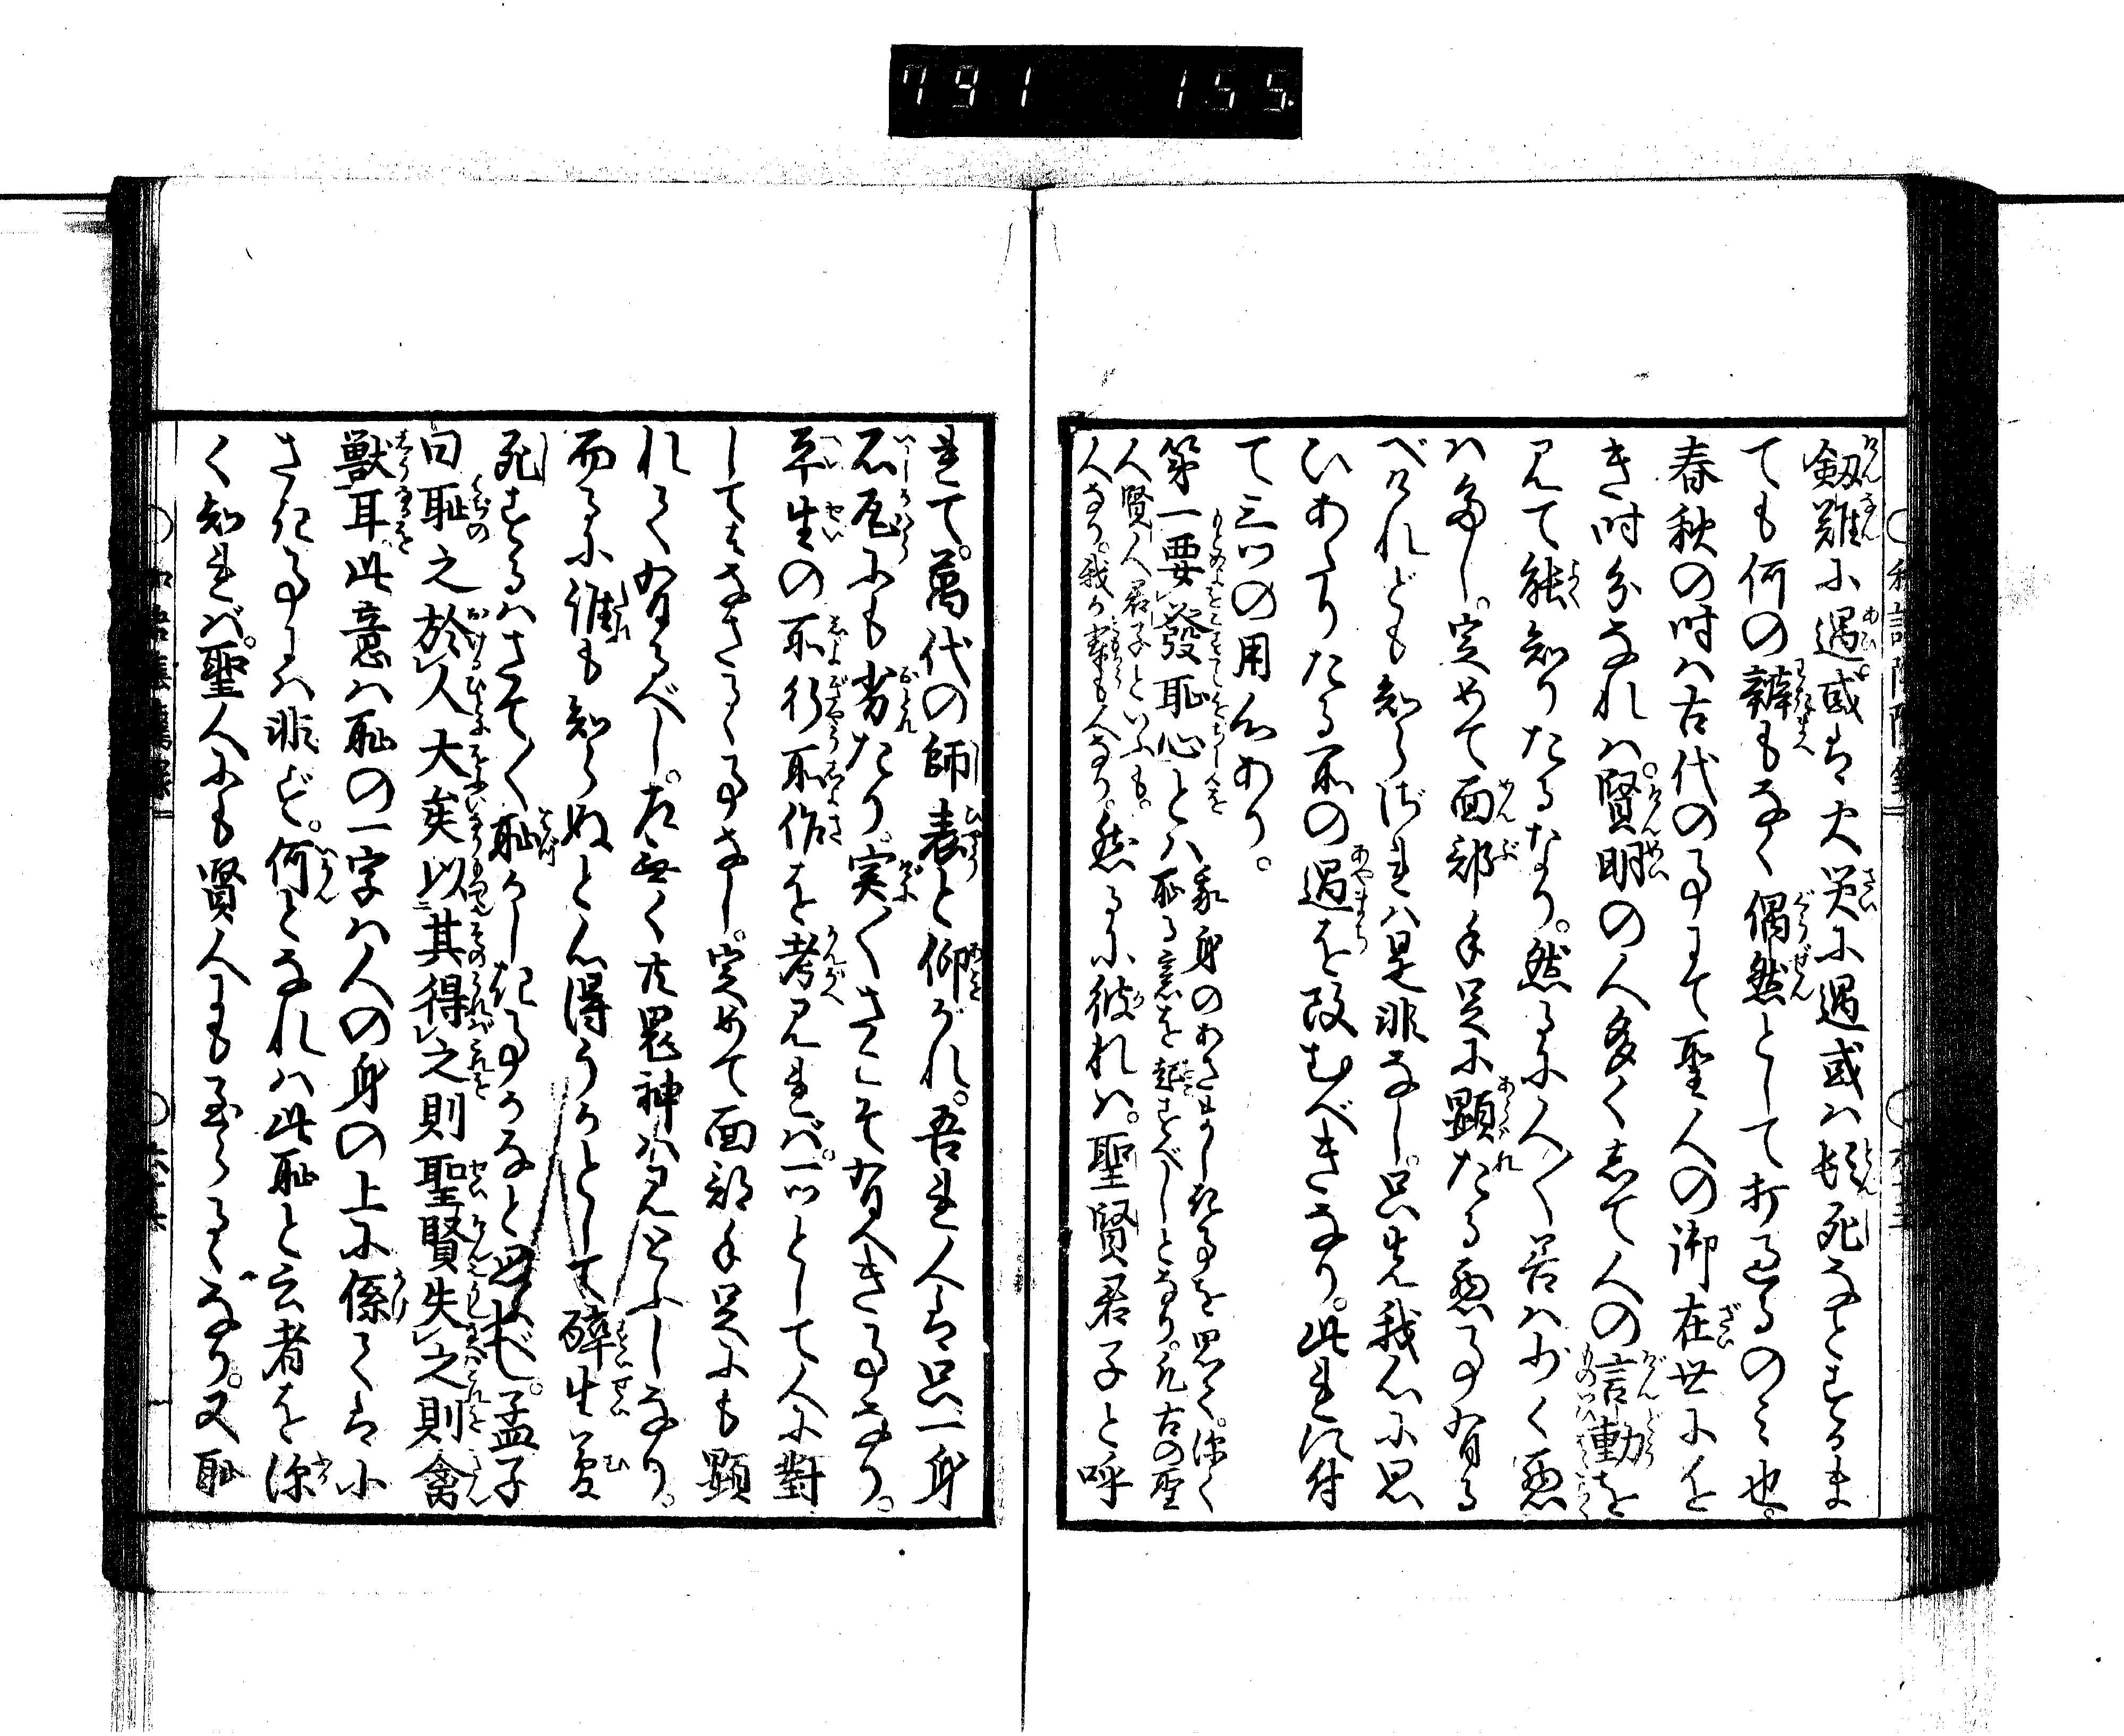 791 155.
劔難に遇。或は火災に遇或は頓死などするま
ても何の辨もなく偶然として打過るのミ也。
春秋の時ハ古代の事にて聖人の御在世にも近
き時分なれハ。賢明の人多くして人の言動を
見て能知りたるなり。然るに人〱善ハ少く悪
ハ多し。定めて面部手足に顕たる悪事有る
べけれども知らざれハ是非なし。只先我心に思
ひあたりたる所の過を改むべきなり。此れに付
て三ツの用心あり。
第一要發恥心とハ我身のあさましき事を思て。深く恥る意を起すべしとなり。凡古の聖
人賢人君子といふも。人なり。我が輩も人なり。然るに彼れハ。聖賢君子と呼
れて。萬代の師表と仰がれ。吾れ人は只一身
瓦にも劣たり。実〱さこそ有べき事なり。
平生の所行所作を考見れバ。一ツとして人に對
してはなさるゝ事なし。定めて面部手足にも顕
れて有るべし。左無く共鬼神ハ見とふしなり。
而るに誰も知らぬと心得うか〱として酔生夢
死するハさて〱恥かしき事かなと思ふべし。孟子
曰恥之於人大矣以其得之則聖賢失之則禽
獣耳此意ハ恥の一字ハ人の身の上に係てハ小
さき事にハ非ず。何となれハ此恥と云者を深
く知れバ。聖人にも賢人にも至らるゝなり。又恥